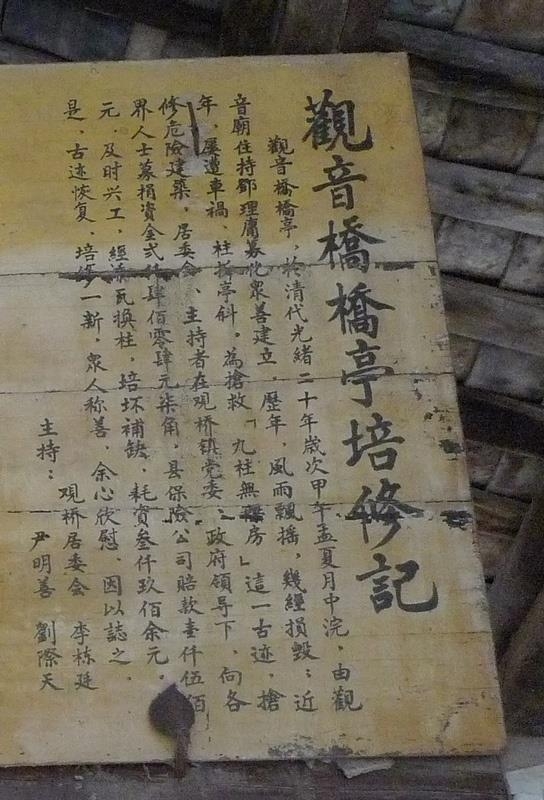 觀音橋橋亭培修記
觀音橋橋亭，於清代光緒二十年歲次甲午孟夏月中浣，由觀
音廟住持鄧理庸募化衆善建立，歷年，風雨飄摇，幾經損毀；近
年，屢遭車禍、柱折亭斜。為搶救「九柱無房」這一古迹，搶
修危險建築，居委會、主持者在观桥镇党委、政府領导下，向各
界人士募捐資金弍仟肆佰零肆元柒角，县保險公司賠款壹仟伍佰
元，及时兴工，經添瓦换柱，培坏補缺、耗資叁仟玖佰余元。
是、古迹恢复、培修一新，衆人称善、余心欣慰、因以誌之。
主持：观桥居委会 李栋廷
尹明善 劉際天